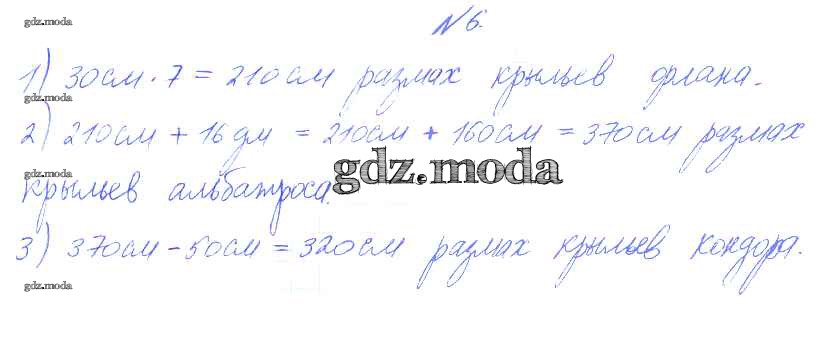 gdz.moda
N 6.
1) 30см · 7 = 210см размах крыльев орлана.
gdz.moda
2) 210см + 16дм = 210см + 160см = 370см размах
gdz.moda
крыльев альбатроса.
gdz.moda
3) 370см - 50см = 320см размах крыльев кондора.
gdz.moda